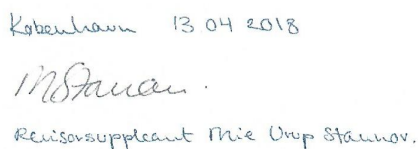 København 13 04 2018
MStannov.
Revisorsuppleant Mie Urup Stannov.